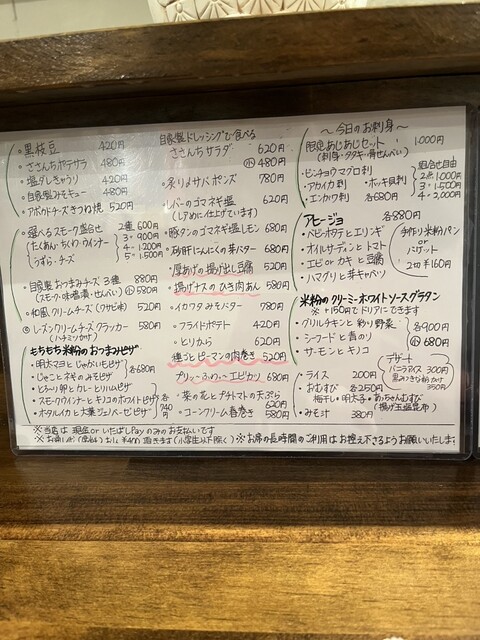 ・黒枝豆 420円
・ささんちポテサラ 480円
・塩ダレきゅうり 420円
・自家製みそキュー 480円
・アボカドチーズきつね焼 520円
・選べるスモーク盛合せ 2種 600円
(たくあん・ちくわ・ウインナー 3・900円
うずら・チーズ 4・1200円
5・1500円
・自家製おつまみチーズ 3種 880円
(スモーク・味噌漬・せんべい) ㋛ 580円
・40風クリームチーズ(ワサビ味) 520円
◎レーズンクリームチーズクラッカー 580円
(ハチミツがけ)
もちもち米粉のおつまみピザ
・明太マヨとじゃがいもピザ
・じゃことネギのみそピザ 各680円
・とろーり卵とカレーとりハムピザ
・スモークウインナーとキノコのホワイトピザ 各740円
・ホタルイカと大葉ジェノベーゼピザ
自家製ドレッシングで食べる
ささんちサラダ 620円
㋛ 480円
・炙りメサバポンズ 780円
・レバーのゴマネギ塩 620円
(しがめに仕上げています)
・豚タンのゴマネギ塩レモン 680円
・砂肝にんにくの芽バター 680円
・厚あげの揚げ出し豆腐 520円
・揚げナスのひき肉あん 580円
・イカワタみそバター 780円
・フライドポテト 420円
・とりから 620円
・種ごとピーマンの肉巻き 520円
・プリッ〜ふわっ〜エビカツ 680円
・菜の花とプチトマトの天ぷら 620円
・コーンクリーム春巻き 580円
〜今日のお刺身〜
限定あじあじセット 1000円
(刺身・タタキ・骨せんべい)
・ビンチョウマグロ刺 組合せ自由
・アカイカ刺 ・ホッキ貝刺 2点 1000円
・エンガワ刺 各680円 3・1500円
4・2000円
アヒージョ 各880円
・ベビーホタテとエリンギ
・オイルサーディンとトマト
・エビ or カキと豆腐
・ハマグリと芽キャベツ
手作り米粉パン
or
バゲット
2切 ¥160円
米粉のクリーミーホワイトソースグラタン
※+150円でドリアにできます
・グリルチキンと彩り野菜 各900円
・シーフードと青のり ㋛ 680円
・サーモンとキノコ
・ライス 200円
・おむすび 各250円
梅干し・明太子・あちゃんむすび
(揚げ玉塩昆布)
・みそ汁 380円
デザート
バニラアイス 300円
黒みつきなこがけ 350円
※当店は 現金 or いたばしPayのみのお支払いです
※お通し代(席料)お1人 ¥400 頂きます(小学生以下除く) ※お席の長時間のご利用はお控え下さるようお願いいたします